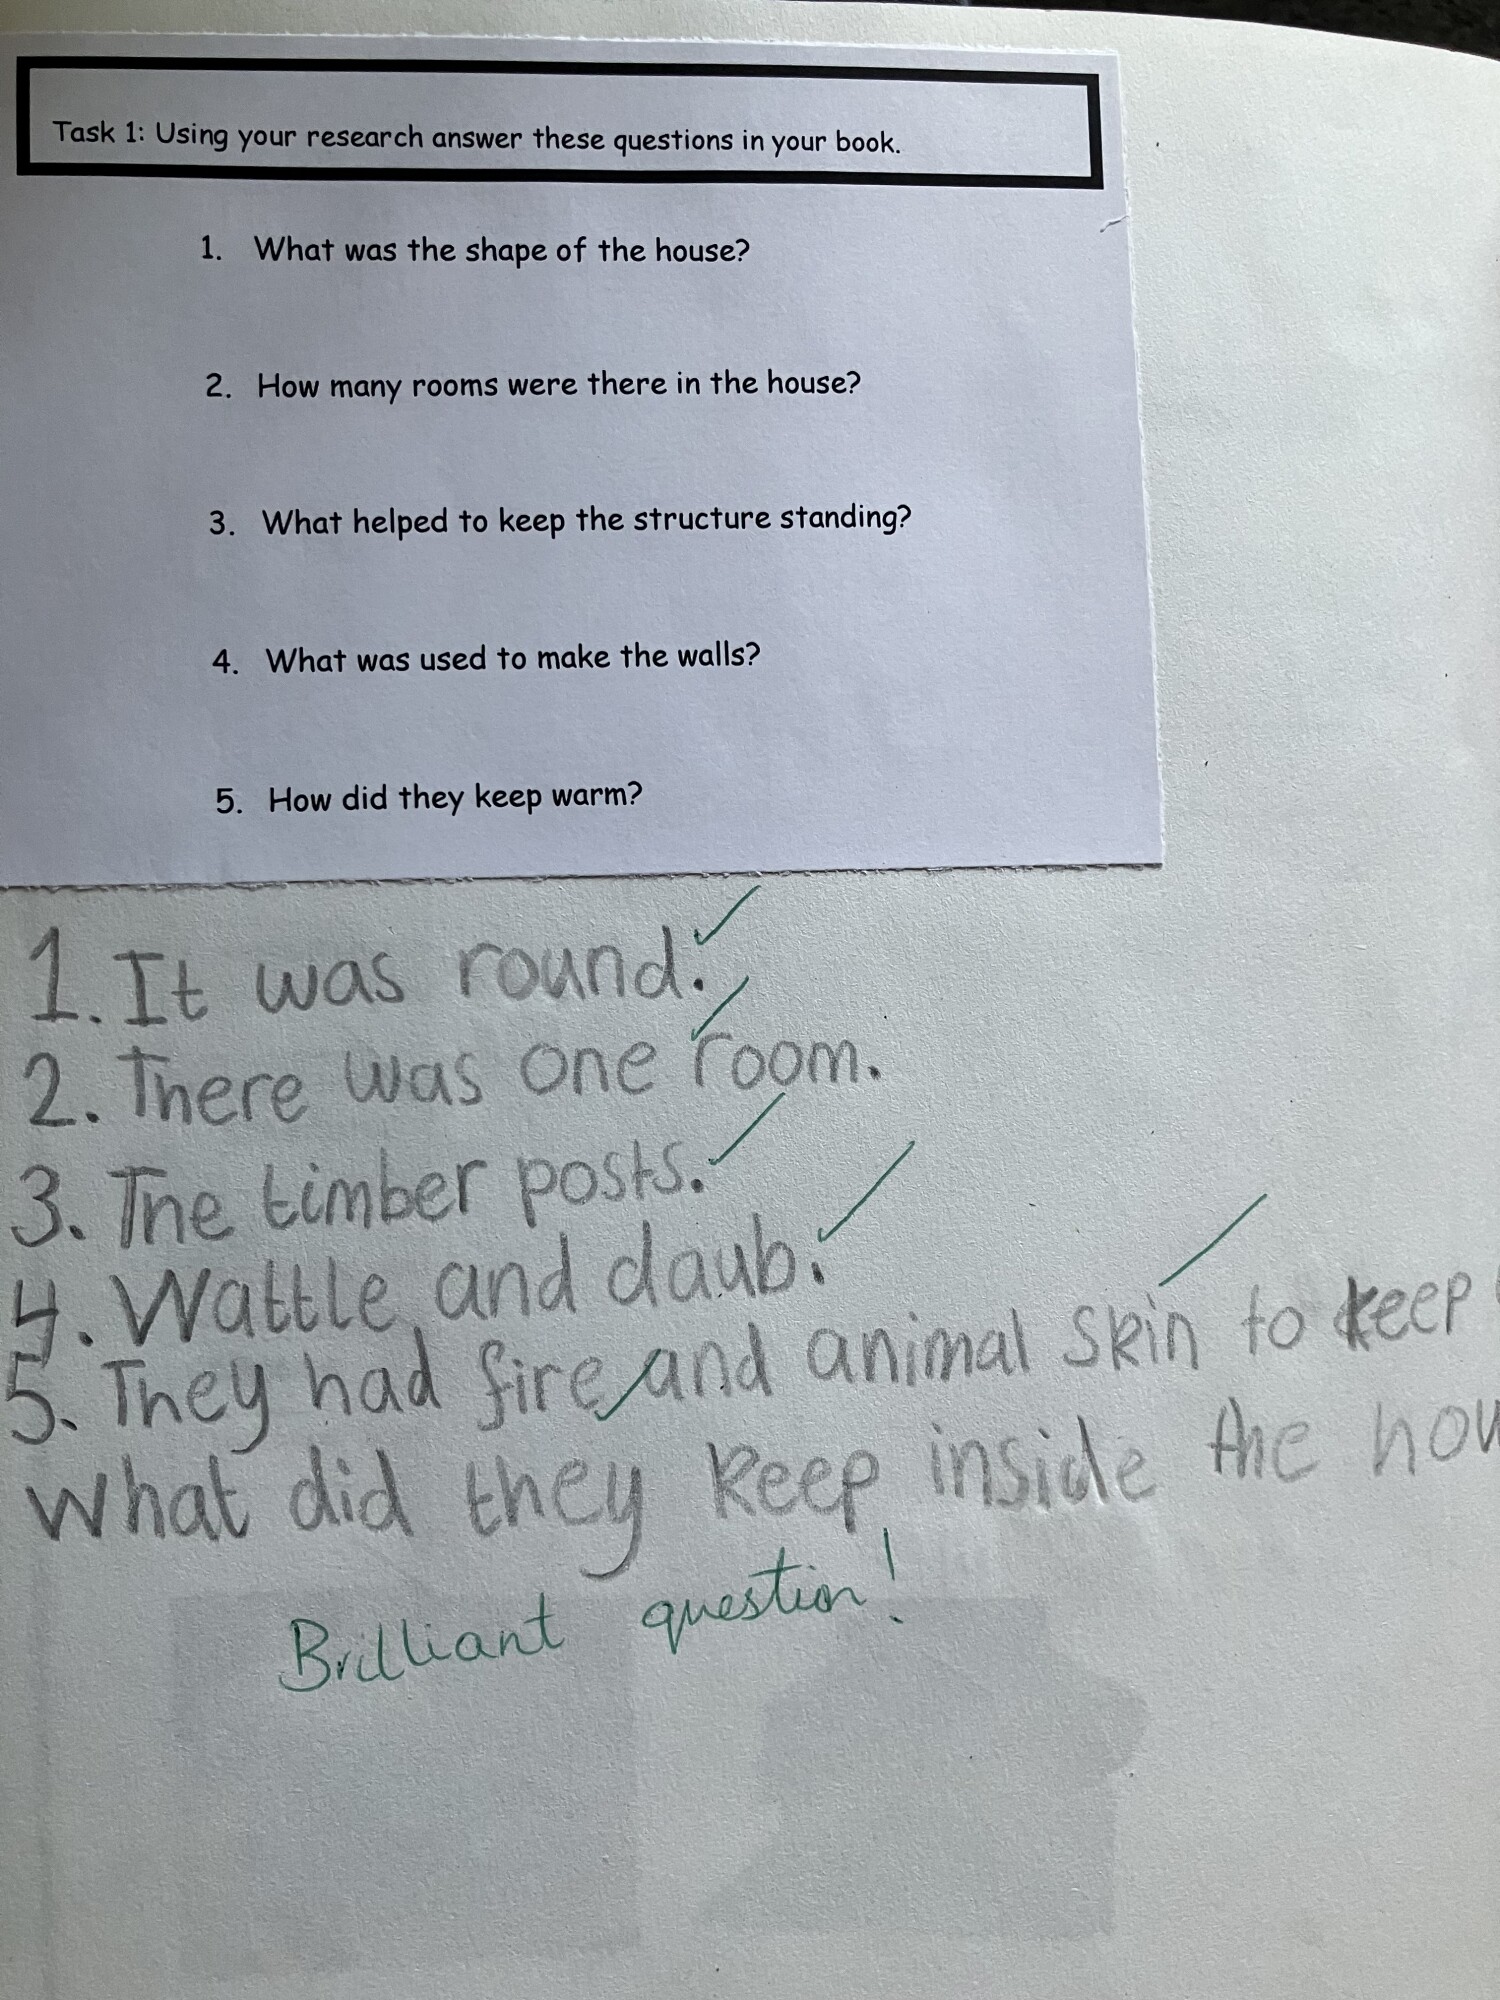 Task 1: Using your research answer these questions in your book.
1. What was the shape of the house?
2. How many rooms were there in the house?
3. What helped to keep the structure standing?
4. What was used to make the walls?
5. How did they keep warm?
1. It was round.
2. There was one room.
3. The timber posts.
4. Wattle and daub.
5. They had fire and animal skin to keep
What did they keep inside the
Brilliant question!